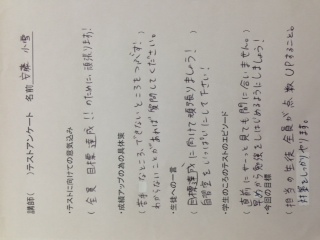 講師( )テストアンケート 名前 安藤 小雪
・テストに向けての意気込み
(全員目標達成!!のために、頑張ります!)
・成績アップの為の具体策
(苦手なところ、できないところをつぶす!
わからないことがあれば質問してください。)
・生徒への一言
(目標達成に向けて頑張りましょう!
自習室をいっぱいにして下さい!)
・学生のころのテストのエピソード
(直前にやーっと見ても間に合いません。
早めから勉強をしはじめるようにしましょう!)
・今回の目標
(担当の生徒全員が点数UPすること。
対策をしっかりやります。)